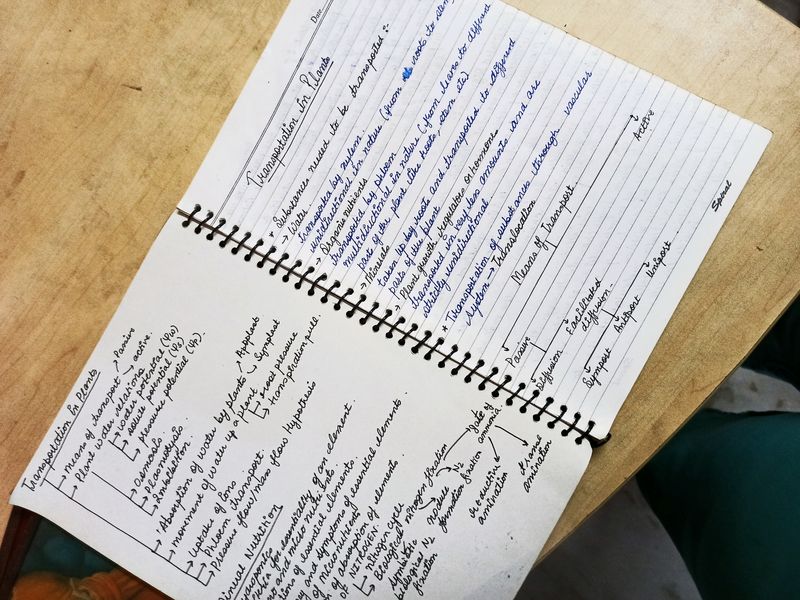 Transportation In Plants
Means of transport
Passive
active.
Plant water relations
water potential (Ψw)
Solute potential (Ψs)
pressure potential (Ψp).
Osmosis
Plasmolysis
Imbibition
Absorption of water by plants
Apoplast
Symplast
movement of water up a plant
root pressure
transpiration pull.
uptake of Ions
Phloem transport.
Pressure flow/mass flow hypothesis
Mineral Nutrition
for essentiality of an element.
and micro nutrients
of essential elements.
and symptoms of essential elements
of micronutrients
of absorption of elements
nitrogen cycle
Biological nitrogen fixation
Symbiotic
biological N2
fixation
nodule
formation
N2
fixation
fate of
ammonia
reductive
amination
trans
amination
Date
Transportation in Plants
Substances needed to be transported :-
→ Water
transported by xylem.
unidirectional in nature (from root to stem
→ Organic nutrients
transported by phloem
multidirectional in nature (from leaves to different
part of the plant like roots, stem etc)
→ Minerals
taken up by roots and transported to different
parts of the plant
→ Plant growth regulators or hormone
transported in very less amounts and are
strictly unidirectional
* Transportation of substances through vascular
system → Translocation
Means of Transport.
Passive
Active
Diffusion
Facilitated
diffusion.
Symport
Antiport
Uniport
Spiral